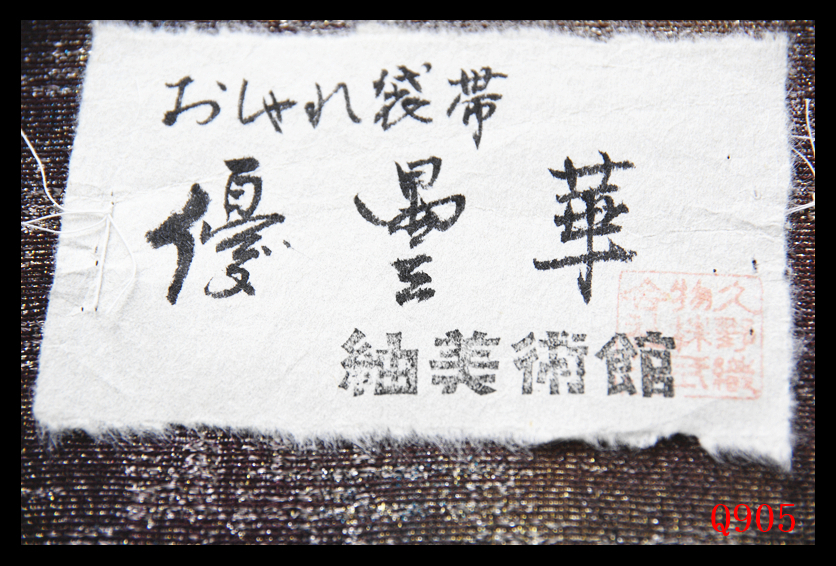 おしゃれ袋帯
優曇華
紬美術館
久野織
物株式
Q905